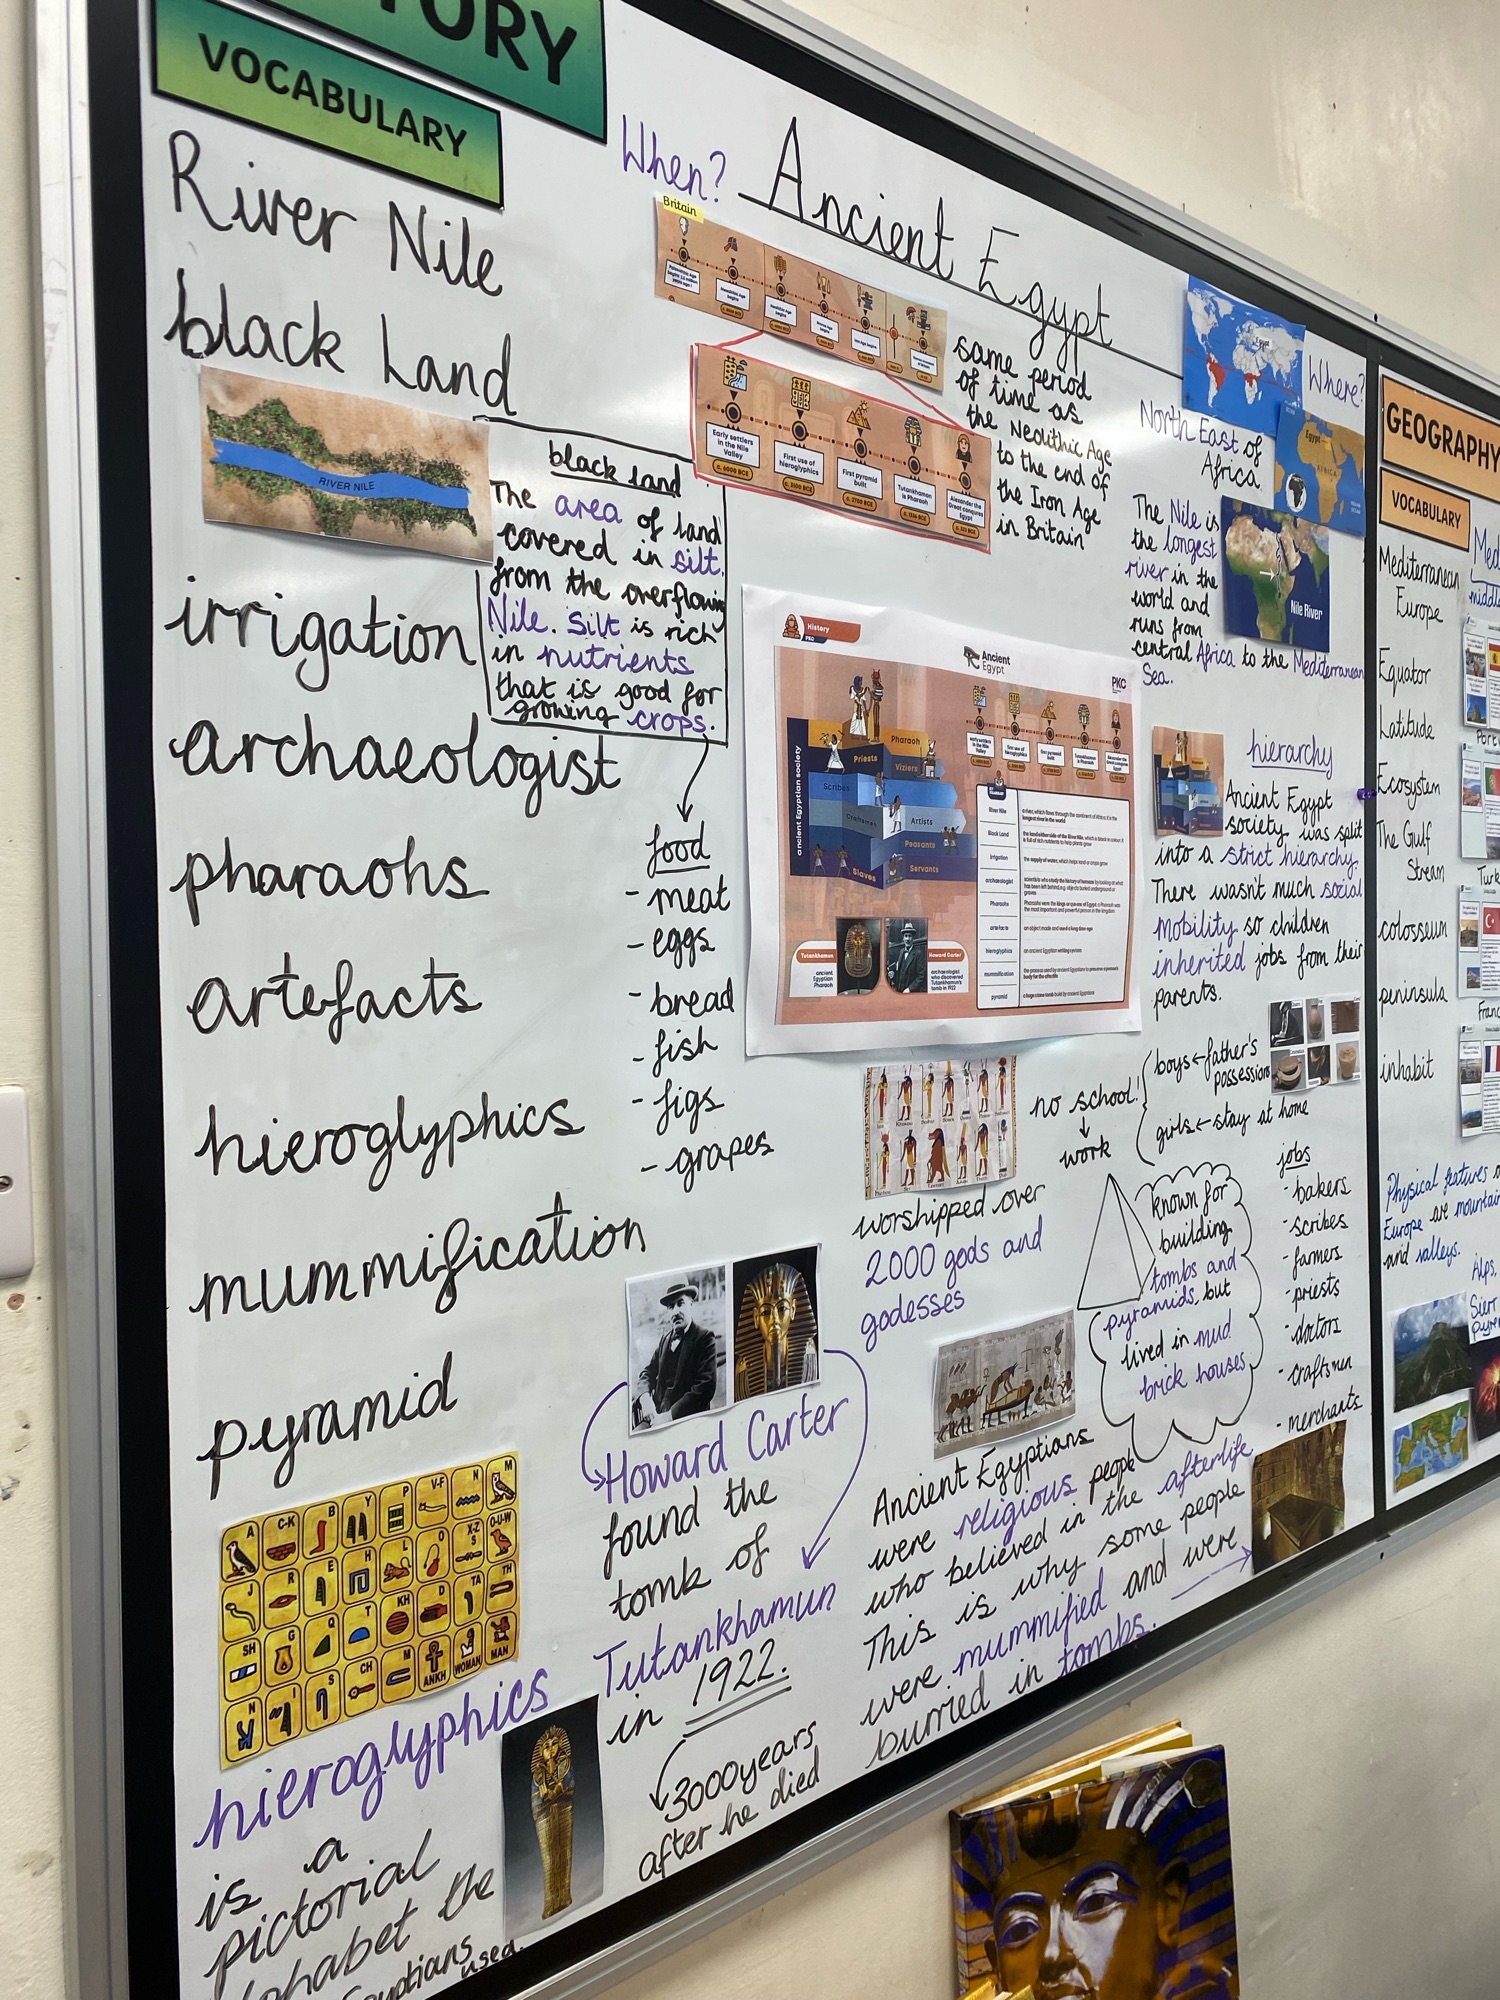 TORY
VOCABULARY
River Nile
black Land
RIVER NILE
irrigation
archaeologist
pharaohs
artefacts
hieroglyphics
mummification
pyramid
black land
The area of land
covered in silt.
from the overflowing
Nile. Silt is rich
in nutrients
that is good for
growing crops.
food
- meat
- eggs
- bread
- fish
- figs
- grapes
A
C-K
B
Y
P
V-F
N
M
J
R
E
H
L
O
X-Z
S
O-U-W
SH
G
Q
T
KH
D
TA
TH
H
I
S
CH
M
ANKH
WOMAN
MAN
hieroglyphics
is a
pictorial
alphabet the
Egyptians
used.
Howard Carter
found the
tomb of
Tutankhamun
in 1922.
3000years
after he died
When?
Ancient Egypt
Britain
Early settlers
in the Nile
Valley
c. 6000 BCE
First use of
hieroglyphics
c. 3100 BCE
First pyramid
built
c. 2700 BCE
Tutankhamun
is Pharaoh
c. 1334 BCE
Alexander the
Great conquers
Egypt
c. 332 BCE
same period
of time as
the Neolithic Age
to the end of
the Iron Age
in Britain
Where?
Egypt
North East of
Africa.
Egypt
AFRICA
The Nile is
the longest
river in the
world and
runs from
central Africa to the Mediterranean
Sea.
Nile River
History
Ancient
Egypt
PKC
ancient Egyptian society
Pharaoh
Priests
Viziers
Scribes
Craftsmen
Artists
Peasants
Slaves
Servants
River Nile
Black Land
irrigation
the supply of water, which helps land or crops grow
archaeologist
Pharaohs
artefacts
an object made and used a long time ago
hieroglyphics
an ancient Egyptian writing system
mummification
pyramid
a huge stone tomb build by ancient Egyptians
Tutankhamun
ancient
Egyptian
Pharaoh
Howard Carter
archaeologist
who discovered
Tutankhamun's
tomb in 1922
hierarchy
Ancient Egypt
society was split
into a strict hierarchy.
There wasn't much social
mobility so children
inherited jobs from their
parents.
no school!
work
boys ← father's
possession
girls ← stay at home
worshipped over
2000 gods and
godesses
known for
building
tombs and
pyramids, but
lived in mud
brick houses
jobs
- bakers
- scribes
- farmers
- priests
- doctors
- craftsmen
- merchants
Ancient Egyptians
were religious people
who believed in the afterlife
This is why some people
were mummified and were
burried in tombs.
GEOGRAPHY
VOCABULARY
Mediterranean
Europe
Equator
Latitude
Ecosystem
The Gulf
Stream
colosseum
peninsula
inhabit
Physical features
Europe are
and valleys.
Alps,